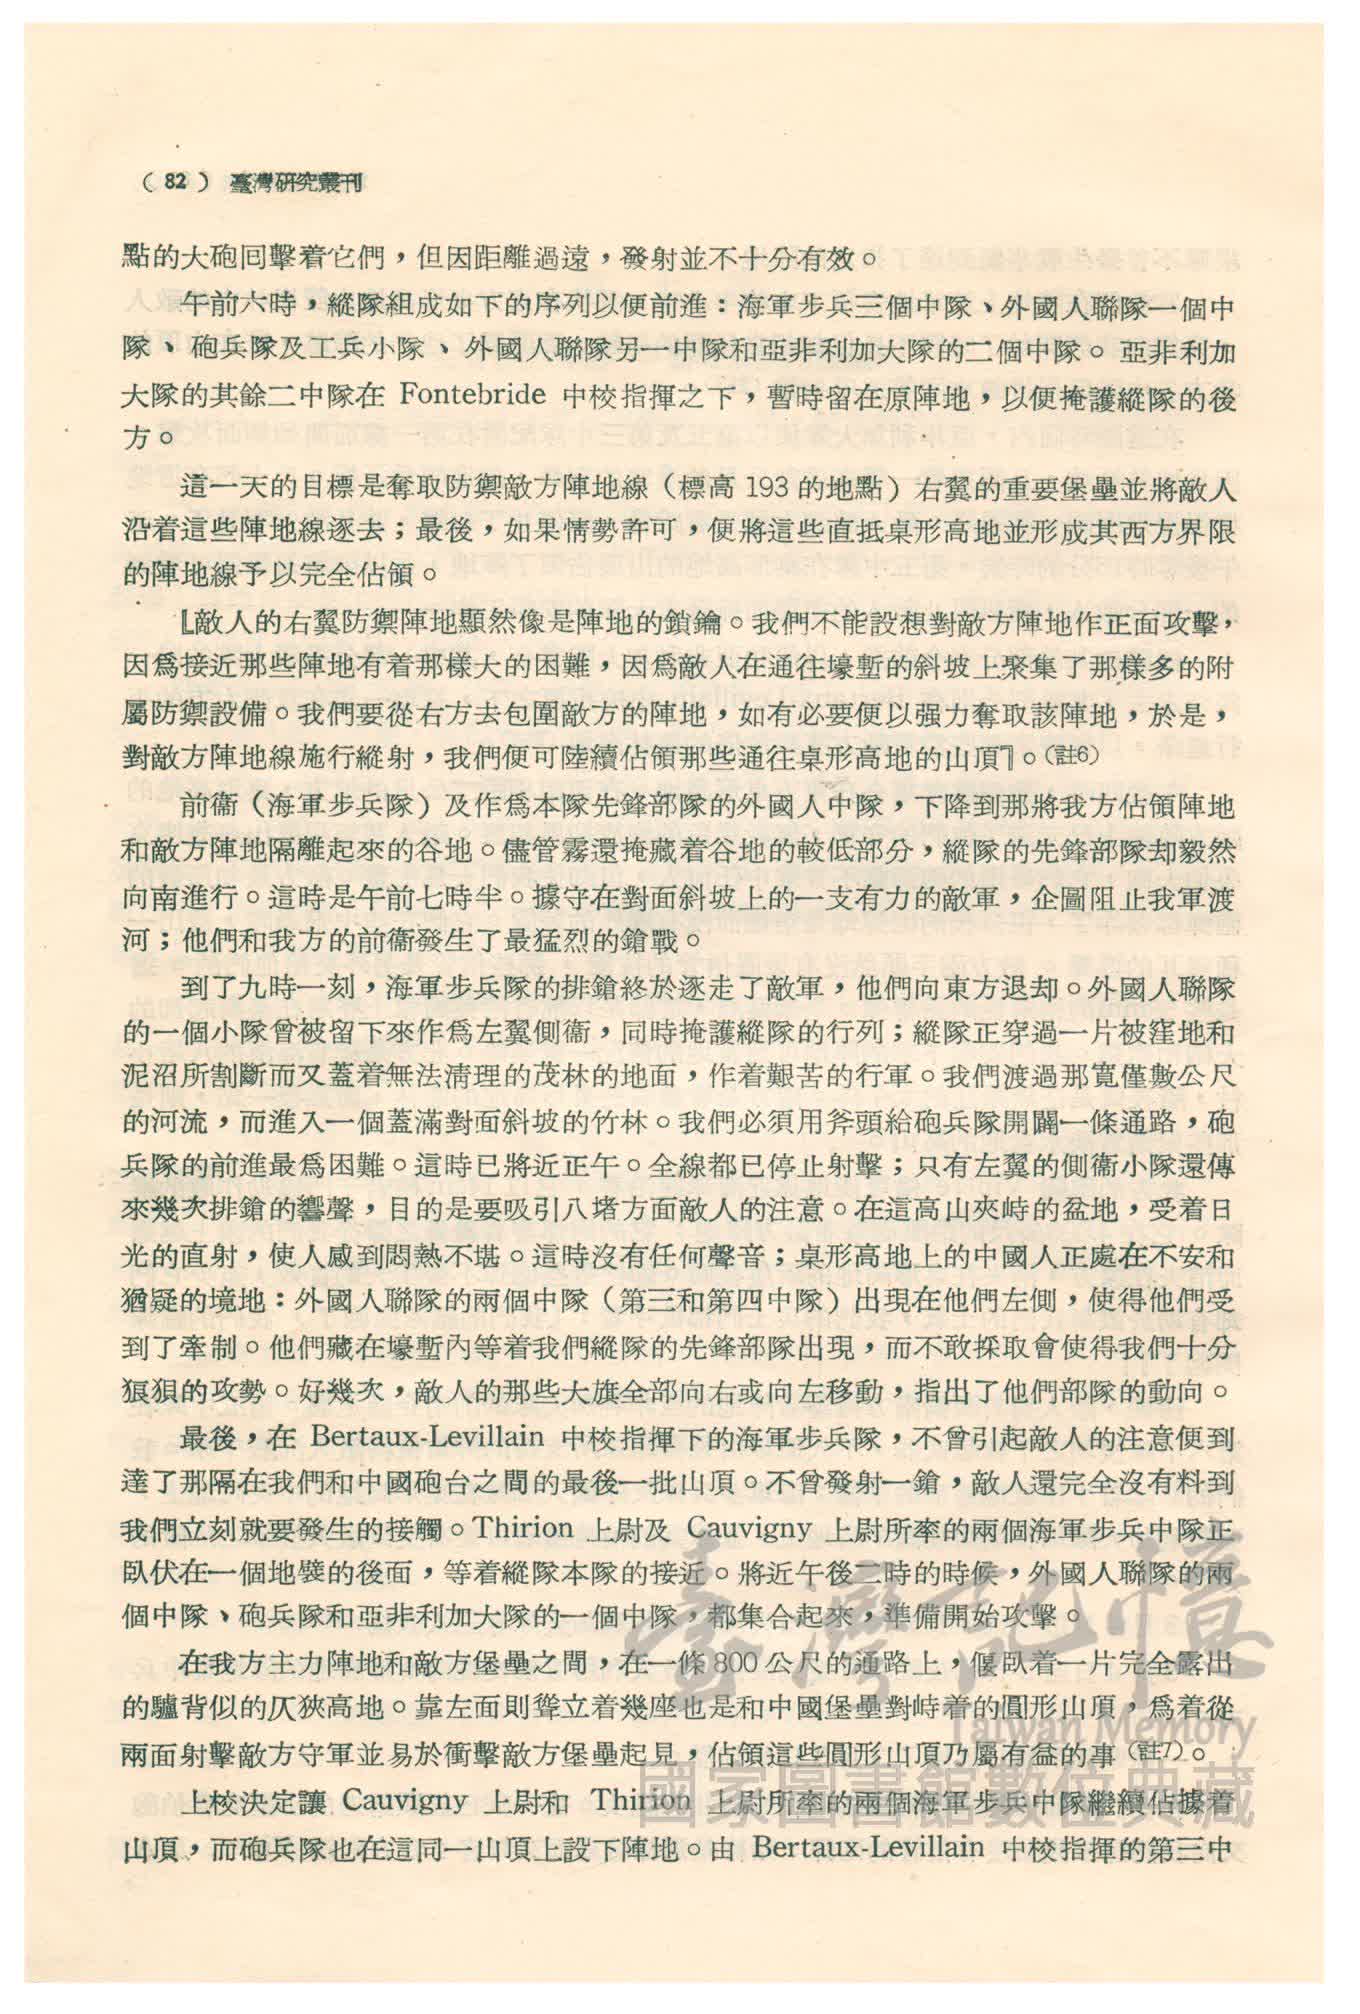 （82） 臺灣研究叢刊
點的大砲囘擊着它們，但因距離過遠，發射並不十分有效。
午前六時，縱隊組成如下的序列以便前進：海軍步兵三個中隊、外國人聯隊一個中
隊、砲兵隊及工兵小隊、外國人聯隊另一中隊和亞非利加大隊的二個中隊。亞非利加
大隊的其餘二中隊在 Fontebride 中校指揮之下，暫時留在原陣地，以便掩護縱隊的後
方。
這一天的目標是奪取防禦敵方陣地線（標高 193 的地點）右翼的重要堡壘並將敵人
沿着這些陣地線逐去；最後，如果情勢許可，便將這些直抵桌形高地並形成其西方界限
的陣地線予以完全佔領。
『敵人的右翼防禦陣地顯然像是陣地的鎖鑰。我們不能設想對敵方陣地作正面攻擊，
因爲接近那些陣地有着那樣大的困難，因爲敵人在通往壕塹的斜坡上聚集了那樣多的附
屬防禦設備。我們要從右方去包圍敵方的陣地，如有必要便以强力奪取該陣地，於是，
對敵方陣地線施行縱射，我們便可陸續佔領那些通往桌形高地的山頂』。（註6）
前衞（海軍步兵隊）及作爲本隊先鋒部隊的外國人中隊，下降到那將我方佔領陣地
和敵方陣地隔離起來的谷地。儘管霧還掩藏着谷地的較低部分，縱隊的先鋒部隊却毅然
向南進行。這時是午前七時半。據守在對面斜坡上的一支有力的敵軍，企圖阻止我軍渡
河；他們和我方的前衞發生了最猛烈的鎗戰。
到了九時一刻，海軍步兵隊的排鎗終於逐走了敵軍，他們向東方退却。外國人聯隊
的一個小隊曾被留下來作爲左翼側衞，同時掩護縱隊的行列；縱隊正穿過一片被窪地和
泥沼所割斷而又蓋着無法清理的茂林的地面，作着艱苦的行軍。我們渡過那寬僅數公尺
的河流，而進入一個蓋滿對面斜坡的竹林。我們必須用斧頭給砲兵隊開闢一條通路，砲
兵隊的前進最爲困難。這時已將近正午。全線都已停止射擊；只有左翼的側衞小隊還傳
來幾次排鎗的響聲，目的是要吸引八堵方面敵人的注意。在這高山夾峙的盆地，受着日
光的直射，使人感到悶熱不堪。這時沒有任何聲音；桌形高地上的中國人正處在不安和
猶疑的境地：外國人聯隊的兩個中隊（第三和第四中隊）出現在他們左側，使得他們受
到了牽制。他們藏在壕塹內等着我們縱隊的先鋒部隊出現，而不敢採取會使得我們十分
狼狽的攻勢。好幾次，敵人的那些大旗全部向右或向左移動，指出了他們部隊的動向。
最後，在 Bertaux-Levillain 中校指揮下的海軍步兵隊，不曾引起敵人的注意便到
達了那隔在我們和中國砲台之間的最後一批山頂。不曾發射一鎗，敵人還完全沒有料到
我們立刻就要發生的接觸。Thirion 上尉及 Cauvigny 上尉所率的兩個海軍步兵中隊正
臥伏在一個地襞的後面，等着縱隊本隊的接近。將近午後二時的時候，外國人聯隊的兩
個中隊、砲兵隊和亞非利加大隊的一個中隊，都集合起來，準備開始攻擊。
在我方主力陣地和敵方堡壘之間，在一條 800 公尺的通路上，偃臥着一片完全露出
的驢背似的仄狹高地。靠左面則聳立着幾座也是和中國堡壘對峙着的圓形山頂，爲着從
兩面射擊敵方守軍並易於衝擊敵方堡壘起見，佔領這些圓形山頂乃屬有益的事（註7）。
上校決定讓 Cauvigny 上尉和 Thirion 上尉所率的兩個海軍步兵中隊繼續佔據着
山頂，而砲兵隊也在這同一山頂上設下陣地。由 Bertaux-Levillain 中校指揮的第三中
臺灣記憶
Taiwan Memory
國家圖書館數位典藏